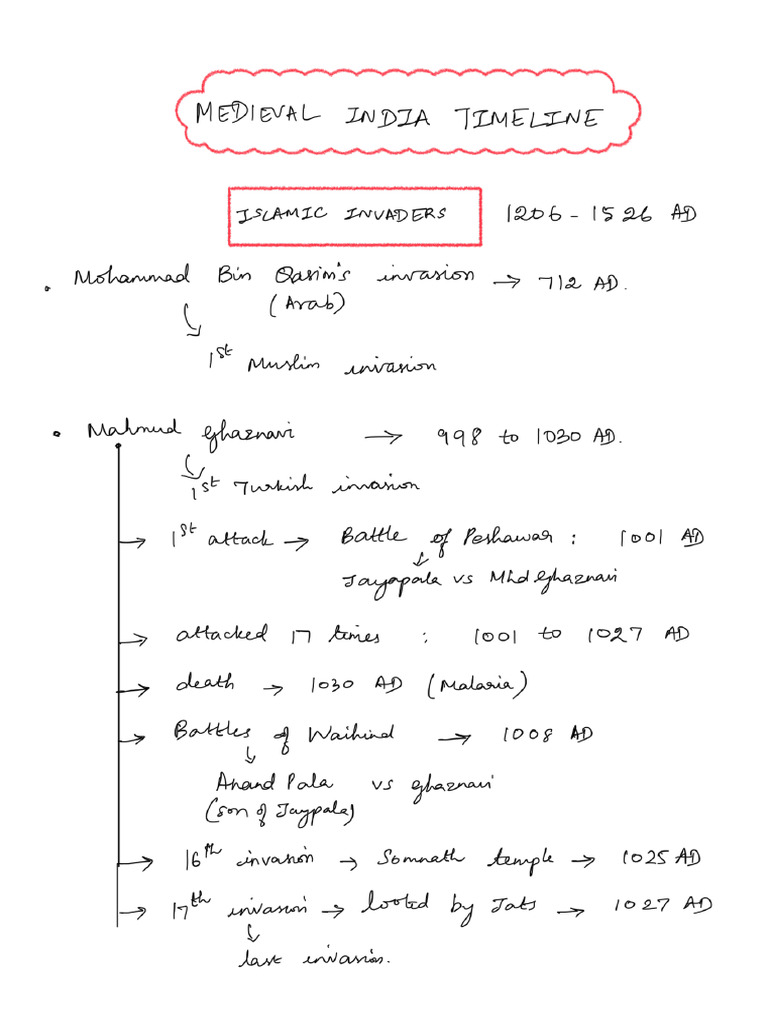 MEDIEVAL INDIA TIMELINE
ISLAMIC INVADERS 1206 - 1526 AD
• Mohammad Bin Qasim's invasion → 712 AD.
(Arab)
1st Muslim invasion
• Mahmud Ghaznavi → 998 to 1030 AD.
1st Turkish invasion
→ 1st attack → Battle of Peshawar : 1001 AD
Jayapala vs Mhd Ghaznavi
→ attacked 17 times : 1001 to 1027 AD
→ death → 1030 AD (Malaria)
→ Battles of Waihind → 1008 AD
Anand Pala vs Ghaznavi
(son of Jaypala)
→ 16th invasion → Somnath temple → 1025 AD
→ 17th invasion → looted by Jats → 1027 AD
last invasion.